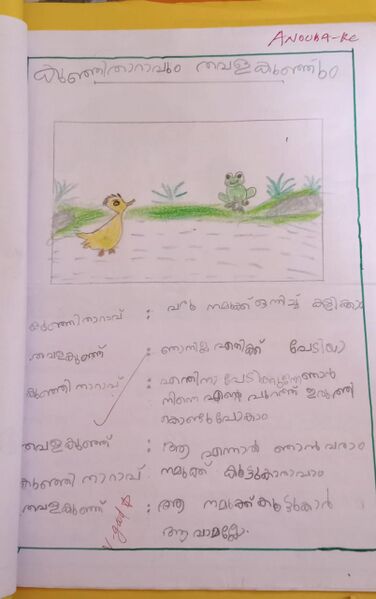 ANOUBA-KC
കുഞ്ഞിതാറാവും തവളകുഞ്ഞും
കുഞ്ഞിതാറാവ് : വരു നമുക്ക് ഒന്നിച്ച് കളിക്കാം
തവളകുഞ്ഞ് : ഞാനില്ല എനിക്ക് പേടിയാ
കുഞ്ഞി താറാവ് : എന്തിനാ പേടിക്കുന്നെ ഞാൻ
നിന്നെ എന്റെ പുറത്ത് ഇരുത്തി
കൊണ്ടുപോകാം
തവളകുഞ്ഞ് : ആ എന്നാൽ ഞാൻ വരാം
കുഞ്ഞി താറാവ് : നമുക്ക് കൂട്ടുകാരാവാം
തവളകുഞ്ഞ് : ആ നമുക്ക് കൂട്ടുകാർ
ആവാമല്ലോ.
V.good